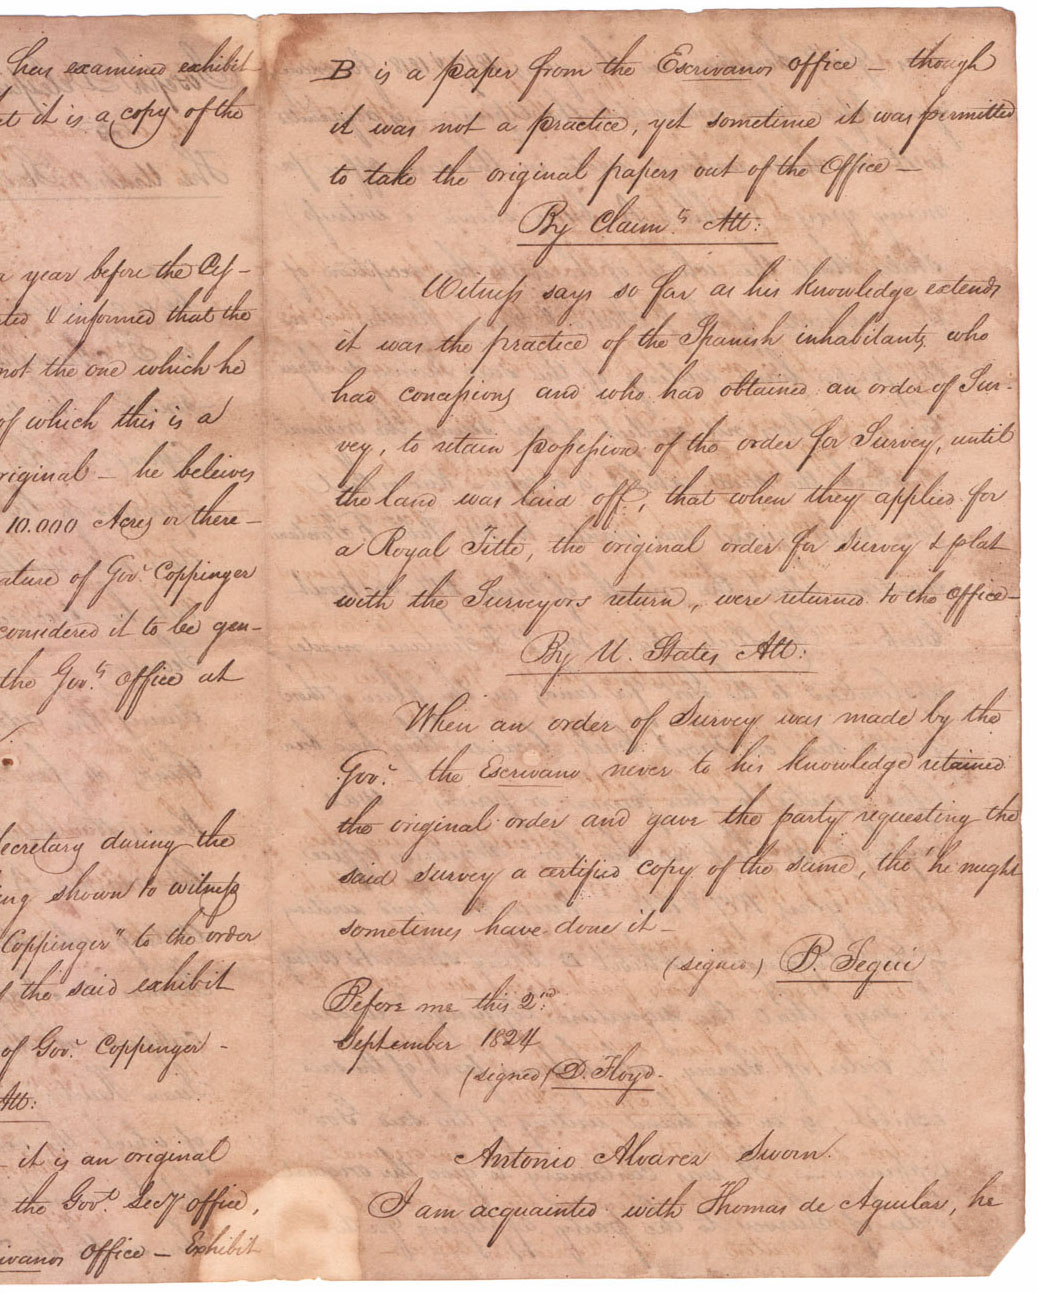 has examined exhibit
it is a copy of the
a year before the Ces-
& informed that the
not the one which he
of which this is a
original - he beleives
10.000 Acres or there-
ature of Govr. Coppinger
considered it to be gen-
the Govrs. Office at
Secretary during the
shown to witness
Coppinger" to the order
the said exhibit
of Govr. Coppenger -
Att:
- it is an original
the Govt. Secy office,
Office - Exhibit
B is a paper from the Escrivanos Office - though
it was not a practice, yet sometime it was permitted
to take the original papers out of the Office -
By Claimts Att:
Witness says so far as his knowledge extends
it was the practice of the Spanish inhabitants, who
had concessions and who had obtained an order of Sur-
vey, to retain possession of the order for Survey, until
the land was laid off, that when they applied for
a Royal Title, the original order for survey & plat
with the Surveyors return, were returned to the Office -
By U. States Att:
When an order of Survey was made by the
Govr. the Escrivano never to his knowledge retained
the original order and gave the party requesting the
said survey a certified copy of the same, tho' he might
sometimes have done it -
(signed) B. Segui
Before me this 2nd:
September 1824
(signed) D. Floyd -
Antonio Alvarez Sworn.
I am acquainted with Thomas de Aguilar, he